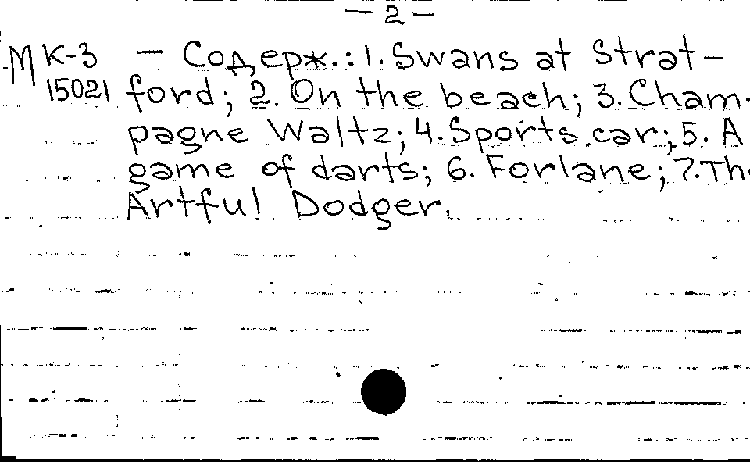 — 2 —
М К-3 — Содерж.: 1. Swans at Strat-
15021 ford; 2. On the beach; 3. Cham-
pagne Waltz; 4. Sports car; 5. A
game of darts; 6. Forlane; 7. The
Artful Dodger.